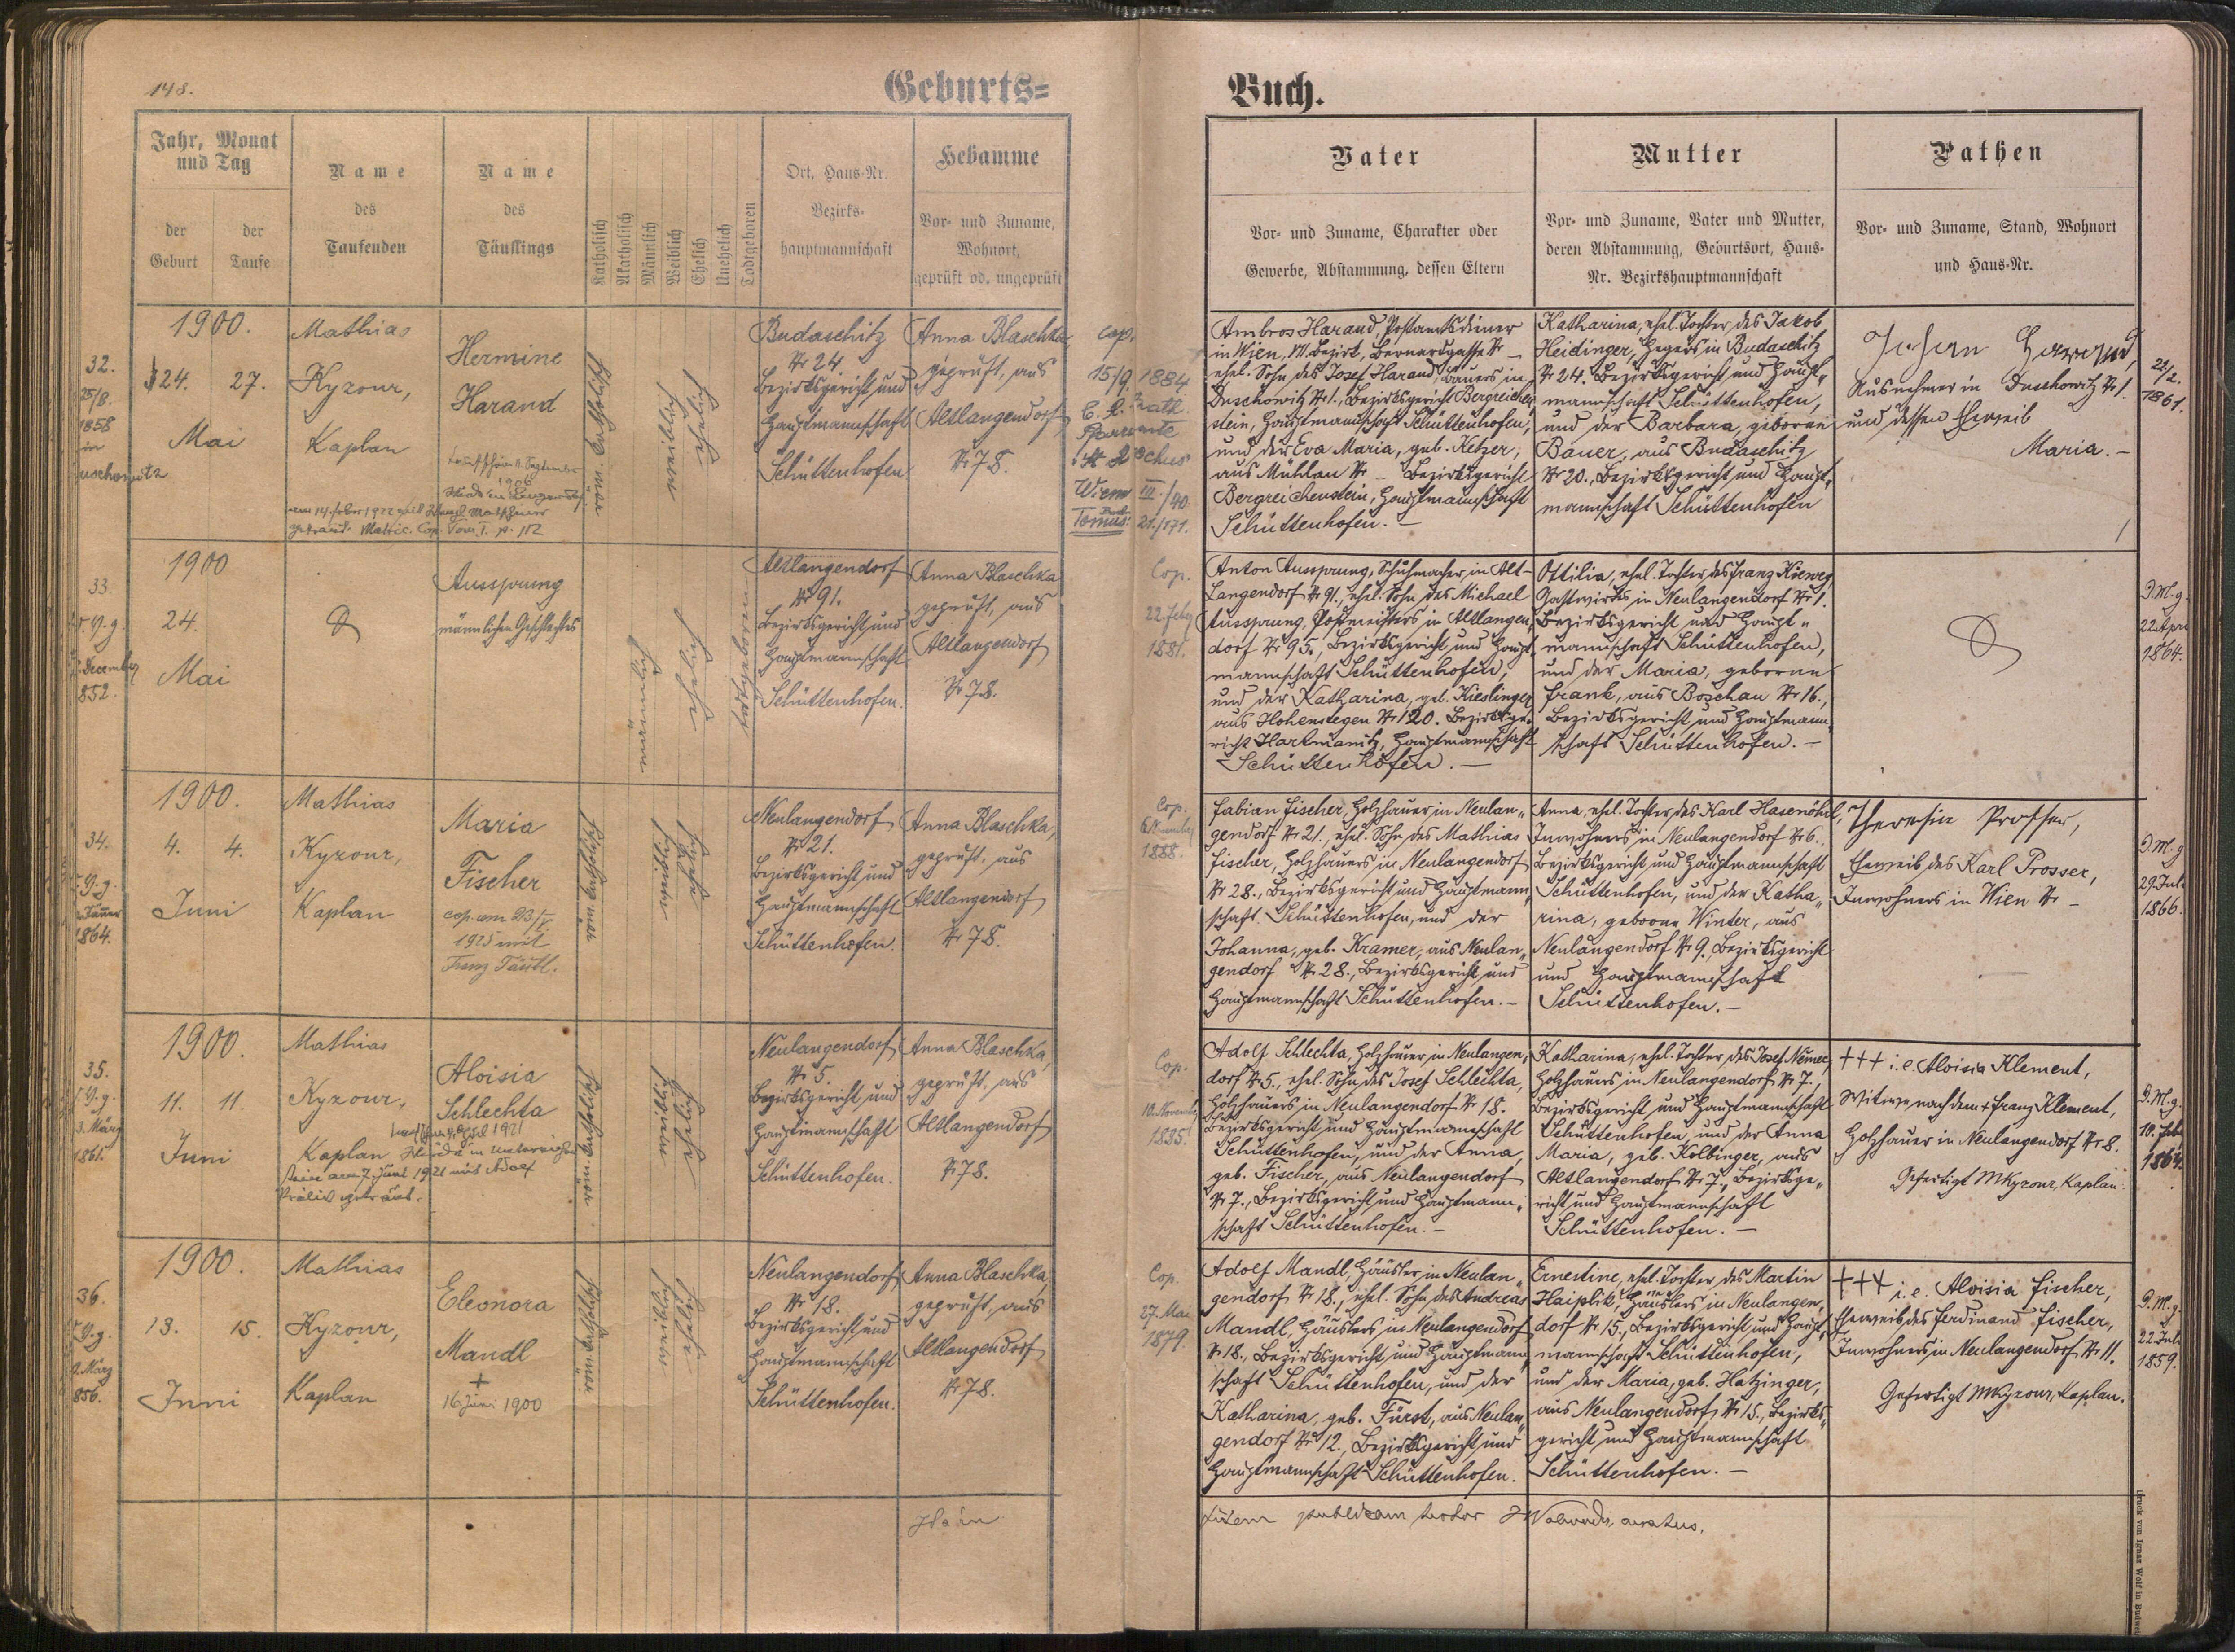 148.
Geburts=
Buch.
Jahr, Monat
und Tag
der
Geburt
der
Taufe
Name
des
Taufenden
Name
des
Täuflings
Katholisch
Akatholisch
Männlich
Weiblich
Ehelich
Unehelich
Todtgeboren
Ort, Haus-Nr.
Bezirks-
hauptmannschaft
Hebamme
Vor- und Zuname,
Wohnort,
geprüft od. ungeprüft
Vater
Vor- und Zuname, Charakter oder
Gewerbe, Abstammung, dessen Eltern
Mutter
Vor- und Zuname, Vater und Mutter,
deren Abstammung, Geburtsort, Haus-
Nr. Bezirkshauptmannschaft
Pathen
Vor- und Zuname, Stand, Wohnort
und Haus-Nr.
32.
25/8.
1858
in
1900.
24. 27.
Mai
Mathias
Kyzour,
Kaplan
Hermine
Harand
katholisch
weiblich
ehelich
Budaschitz
Nr 24.
Bezirksgericht und
Hauptmannschaft
Schüttenhofen
Anna Blaschka,
geprüft, aus
Altlangendorf
Nr 78.
cop.
15/9. 1884
Wien III./40.
Tomus: 21/171.
Ambros Harand, Postamtsdiener
in Wien, VII. Bezirk, Bernardgasse Nr –
ehel. Sohn des Josef Harand, Bauers in
Duschowitz Nr 1., Bezirksgericht Bergreichen-
stein, Hauptmannschaft Schüttenhofen,
und der Eva Maria, geb. Ketzer,
aus Mühlau Nr – Bezirksgericht
Bergreichenstein, Hauptmannschaft
Schüttenhofen. –
Katharina, ehel. Tochter des Jakob
Heidinger, Hegers in Budaschitz
Nr 24. Bezirksgericht und Haupt„
mannschaft Schüttenhofen,
und der Barbara, geboren
Bauer, aus Budaschitz
Nr 20., Bezirksgericht und Haupt„
mannschaft Schüttenhofen
Johann Harand,
Ausnehmer in Duschowitz Nr 1.
und dessen Eheweib
Maria. –
22/2.
1861.
33.
852.
1900
24.
Mai
Aussprung
männlichen Geschlechtes
männlich
ehelich
todtgeboren
Altlangendorf
Nr 91.
Bezirksgericht und
Hauptmannschaft
Schüttenhofen.
Anna Blaschka
geprüft, aus
Altlangendorf
Nr 78.
Cop.
22. Feby
1881.
Anton Aussprung, Schuhmacher in Alt-
Langendorf Nr 91., ehel. Sohn des Michael
Aussprung, Postmeisters in Altlangen„
dorf Nr 95., Bezirksgericht und Haupt„
mannschaft Schüttenhofen,
und der Katharina, geb. Kieslinger
aus Hohenstegen Nr 120. Bezirksge„
richt Hartmanitz, Hauptmannschaft
Schüttenhofen. –
Ottilia, ehel. Tochter des Franz Kieweg,
Gastwirts in Neulangendorf Nr 1.
Bezirksgericht und Haupt„
mannschaft Schüttenhofen,
und der Maria, geborene
Frank, aus Boschau Nr 16.,
Bezirksgericht und Hauptmann„
schaft Schüttenhofen. –
1864.
34.
1864.
1900.
4. 4.
Juni
Mathias
Kyzour,
Kaplan
Maria
Fischer
1925 mit
katholisch
weiblich
ehelich
Neulangendorf
Nr 21.
Bezirksgericht und
Hauptmannschaft
Schüttenhofen.
Anna Blaschka,
geprüft, aus
Altlangendorf
Nr 78.
Cop.
1888.
Fabian Fischer, Holzhauer in Neulan„
gendorf Nr 21., ehel. Sohn des Mathias
Fischer, Holzhauers in Neulangendorf
Nr 28., Bezirksgericht und Hauptmann„
schaft Schüttenhofen, und der
Johanna, geb. Kramer, aus Neulan„
gendorf Nr 28., Bezirksgericht und
Hauptmannschaft Schüttenhofen. –
Anna, ehel. Tochter des Karl Hasenöhrl,
Inwohners in Neulangendorf Nr 6.,
Bezirksgericht und Hauptmannschaft
Schüttenhofen, und der Katha„
rina, geborene Winter, aus
Neulangendorf Nr 9., Bezirksgericht
und Hauptmannschaft
Schüttenhofen. –
Theresia Prosser,
Eheweib des Karl Prosser,
Inwohners in Wien Nr –
29. Juli
1866.
35.
3. März
1861.
1900.
11. 11.
Juni
Mathias
Kyzour,
Kaplan
Aloisia
Schlechta
katholisch
weiblich
ehelich
Neulangendorf
Nr 5.
Bezirksgericht und
Hauptmannschaft
Schüttenhofen.
Anna Blaschka,
geprüft, aus
Altlangendorf
Nr 78.
Cop.
Adolf Schlechta, Holzhauer in Neulangen„
dorf Nr 5., ehel. Sohn des Josef Schlechta,
Holzhauers in Neulangendorf Nr 18.
Bezirksgericht und Hauptmannschaft
Schüttenhofen, und der Anna,
geb. Fischer, aus Neulangendorf
Nr 7., Bezirksgericht und Hauptmann„
schaft Schüttenhofen. –
Katharina, ehel. Tochter des Josef Němec,
Holzhauers in Neulangendorf Nr 7.,
Bezirksgericht und Hauptmannschaft
Schüttenhofen, und der Anna
Maria, geb. Kolbinger, aus
Altlangendorf Nr 7., Bezirksge„
richt und Hauptmannschaft
Schüttenhofen. –
+++ i. e. Aloisia Klement,
Witwe nach dem + Franz Klement,
Holzhauer in Neulangendorf Nr 8.
Gefertigt MKyzour, Kaplan.
1864.
36.
856.
1900.
13. 15.
Juni
Mathias
Kyzour,
Kaplan
Eleonora
Mandl
+
16. Juni 1900
katholisch
weiblich
ehelich
Neulangendorf
Nr 18.
Bezirksgericht und
Hauptmannschaft
Schüttenhofen.
Anna Blaschka,
geprüft, aus
Altlangendorf
Nr 78.
Cop.
27. Mai
1879.
Adolf Mandl, Häusler in Neulan„
gendorf Nr 18., ehel. Sohn des Andreas
Mandl, Häuslers in Neulangendorf
Nr 18., Bezirksgericht und Hauptmann„
schaft Schüttenhofen, und der
Katharina, geb. Fürst, aus Neulan„
gendorf Nr 12., Bezirksgericht und
Hauptmannschaft Schüttenhofen.
Ernestine, ehel. Tochter des Martin
Haiplik, Häuslers in Neulangen„
dorf Nr 15., Bezirksgericht und Haupt„
mannschaft Schüttenhofen,
und der Maria, geb. Hatzinger,
aus Neulangendorf Nr 15., Bezirks„
gericht und Hauptmannschaft
Schüttenhofen. –
+++ i. e. Aloisia Fischer,
Eheweib des Ferdinand Fischer,
Inwohners in Neulangendorf Nr 11.
Gefertigt MKyzour, Kaplan.
22. Juli
1859.
fidem publicam testor
Druck von Ignaz Wolf in Budweis